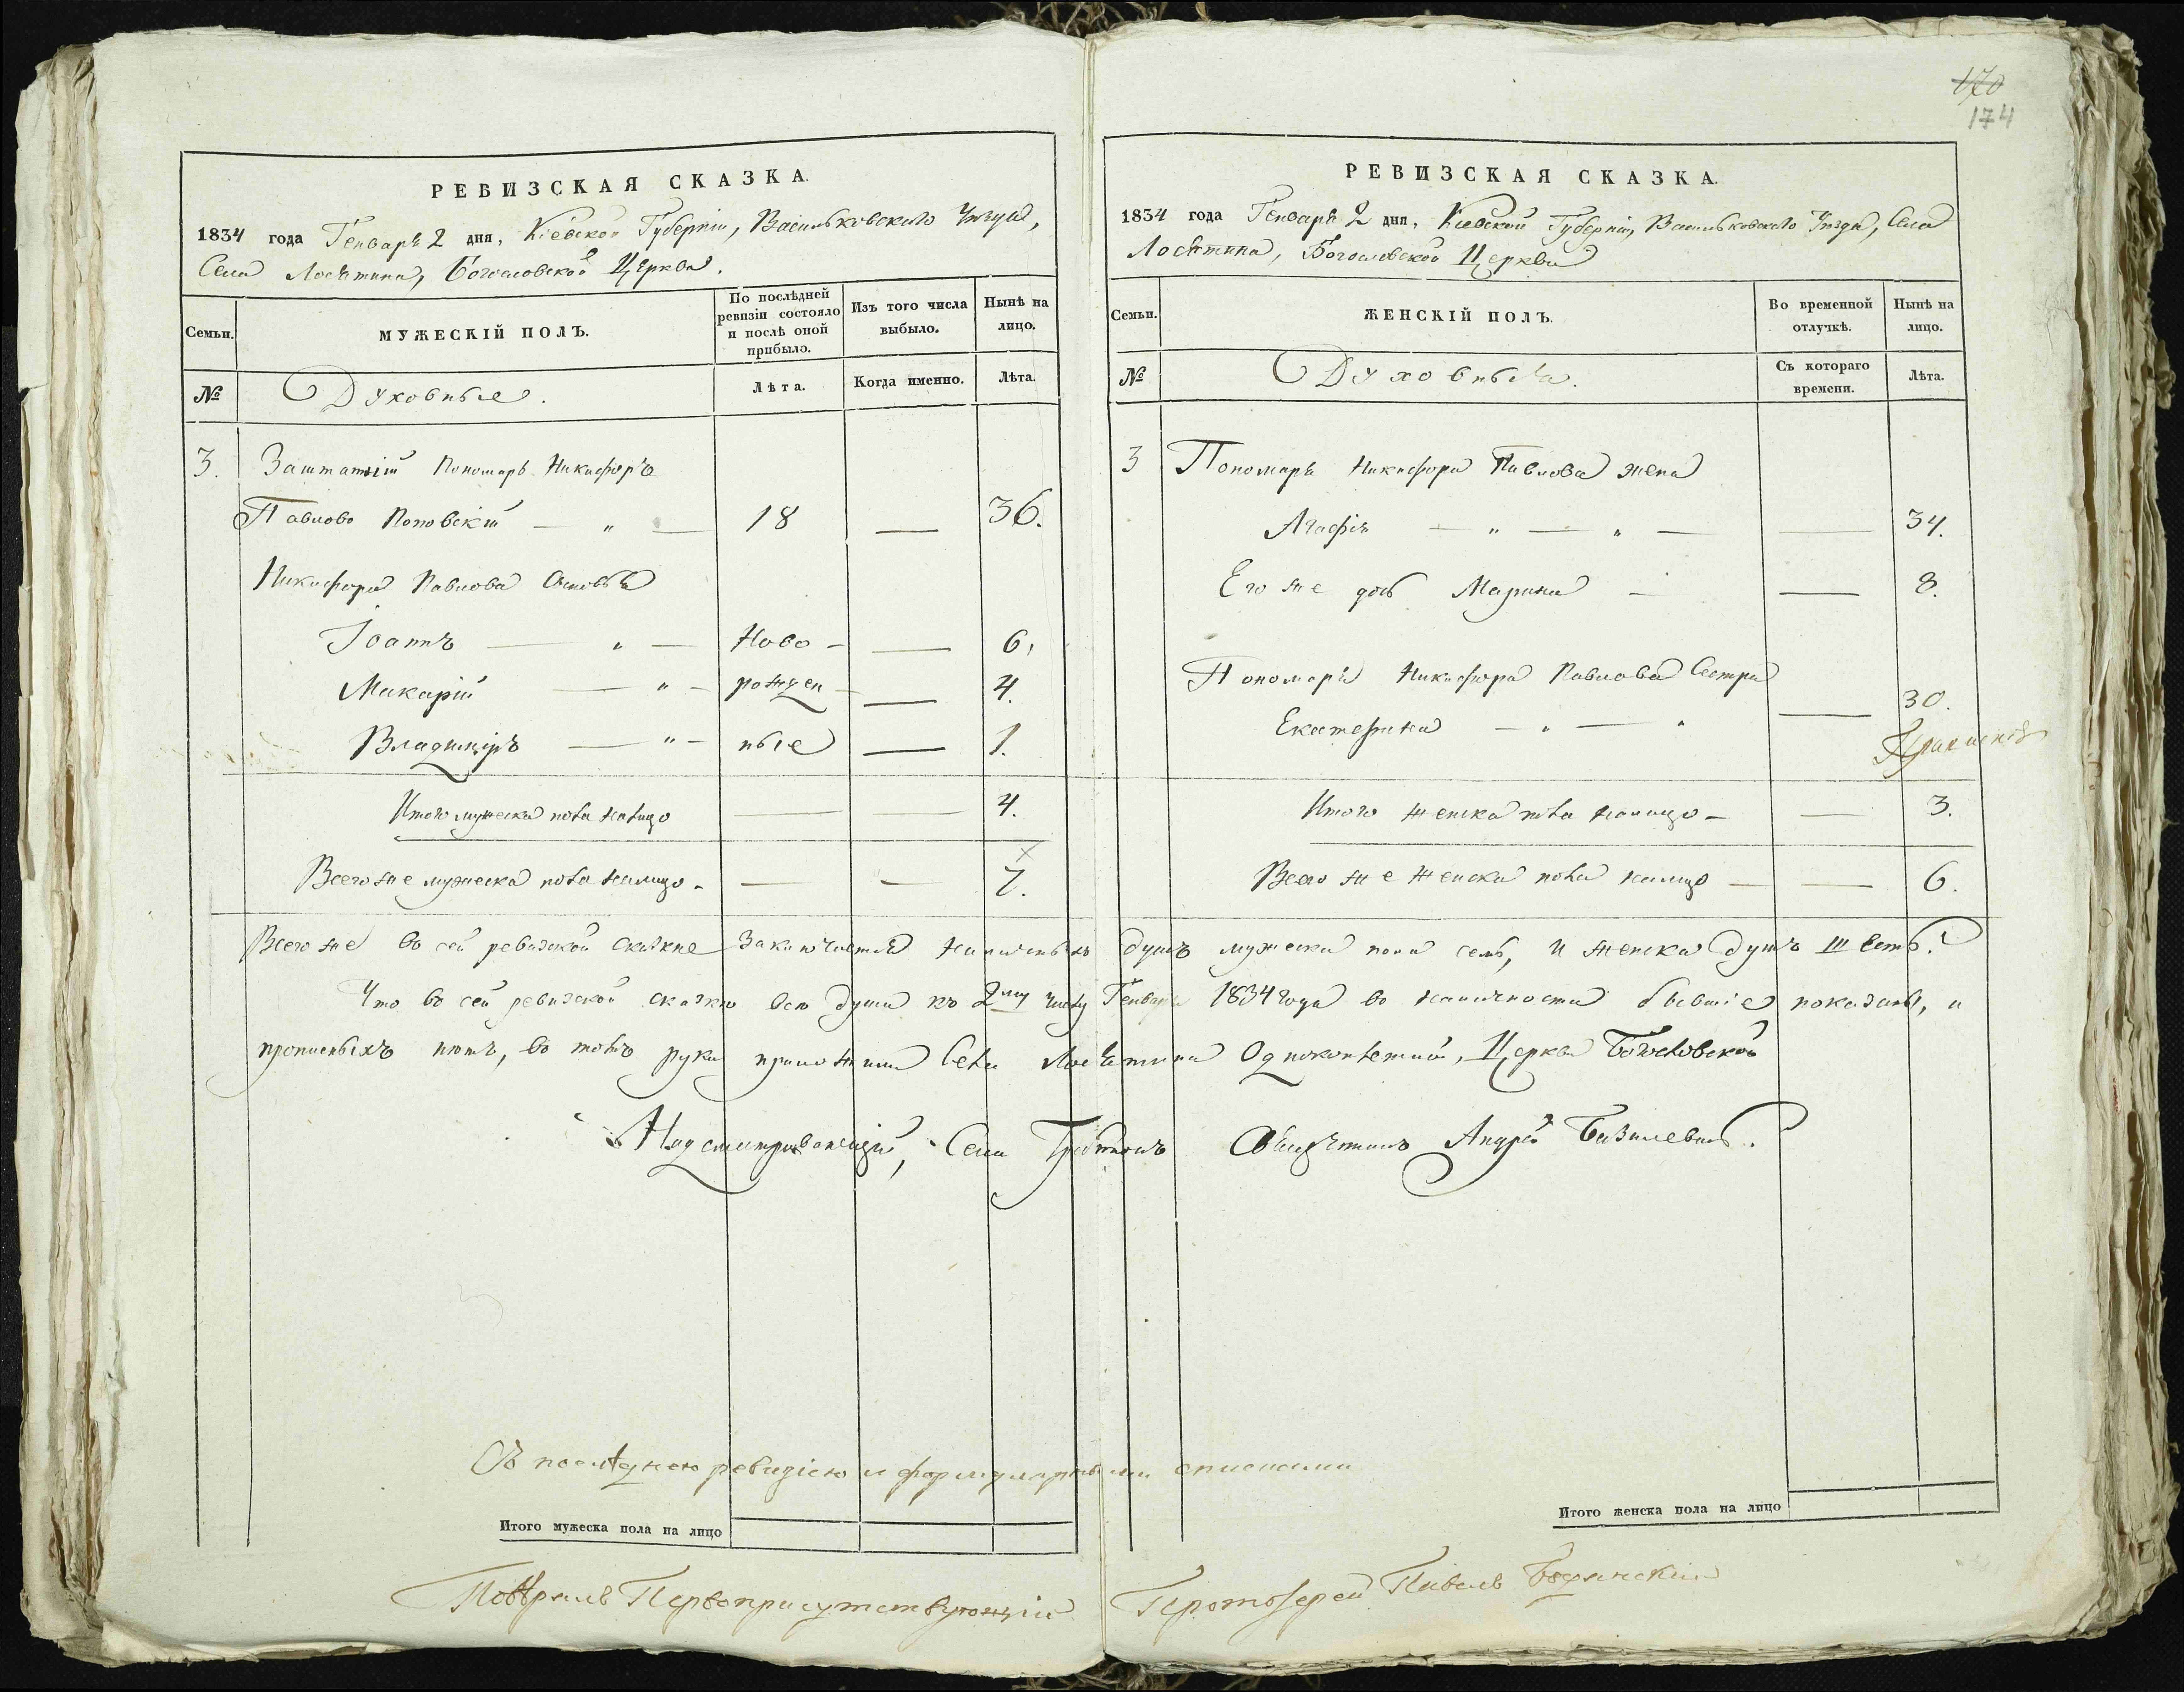 170
174
РЕВИЗСКАЯ СКАЗКА.
1834 года Генваря 2 дня, Кіевской Губерніи, Васильковскаго Уезда,
Села Лосятина, Богословской Церкви.
Семьи.
МУЖЕСКІЙ ПОЛЪ.
По послѣдней ревизіи состояло и послѣ оной прибыло.
Изъ того числа выбыло.
Нынѣ на лицо.
№
Духовные.
Лѣта.
Когда именно.
Лѣта.
3. Заштатній Пономарь Никифоръ
Павловъ Поповскій — „ — 18 — 36.
Никифора Павлова Сыновья
Іоаннъ — „ — Ново- — 6.
Макарій — „ — рожден — 4.
Владиміръ — „ — ные — 1.
Итого мужеска пола налицо — — 4.
Всего же мужеска пола налицо. — — 7.
РЕВИЗСКАЯ СКАЗКА.
1834 года Генваря 2 дня, Кіевской Губерніи, Васильковскаго Уезда, Села
Лосятина, Богословской Церкви
Семьи.
ЖЕНСКІЙ ПОЛЪ.
Во временной отлучкѣ.
Нынѣ на лицо.
№
Духовныя.
Съ котораго времени.
Лѣта.
3 Пономаря Никифора Павлова жена
Агафія — „ — „ — — 34.
Его же дочь Марина — — 8.
Пономаря Никифора Павлова Сестра
Екатерина — „ — „ — 30.
Итого женска пола налицо — — 3.
Всего же женска пола налицо — — 6.
Всего же въ сей ревизской сказке заключается наличныхъ душъ мужеска пола семь, и женска душъ шесть.
Что въ сей ревизской сказкѣ всѣ души къ 2му числу Генваря 1834 года въ наличности бывшіе показаны, и
прописныхъ нѣтъ, въ томъ руки приложили Села Лосятина Церкви Богословской
Надсматривающій, Села Свящѣнникъ Андрей Базилевичъ.
Съ послѣднею ревизіею и формулярными списками
Итого мужеска пола на лицо
Итого женска пола на лицо
Повѣрялъ Первоприсутствующій Протоіерей Павелъ